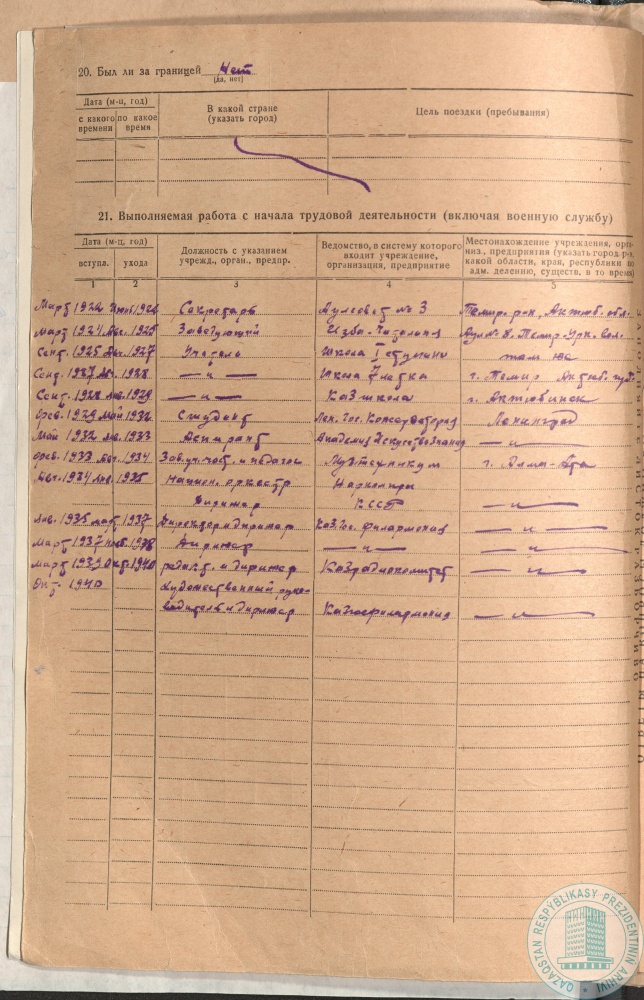 20. Был ли за границей Нет
(да, нет)
Дата (м-ц, год)
с какого времени
по какое время
В какой стране
(указать город)
Цель поездки (пребывания)
21. Выполняемая работа с начала трудовой деятельности (включая военную службу)
Дата (м-ц, год)
вступл.
ухода
Должность с указанием
учрежд., орган., предпр.
Ведомство, в систему которого
входит учреждение,
организация, предприятие
Местонахождение учреждения, орга-
низ., предприятия (указать город, р-н,
какой области, края, республики по
адм. делению, существ. в то время)
1 2 3 4 5
Март 1922 1924 Секретарь Аулсовет № 3 Темир. р-он, Актюб. обл.
Март 1924 Авг. 1925 Заведующий Изба-Читальня Аул № 8. Темир.
Сент. 1925 Авг. 1927 Учитель Школа I ступени там же
Сент. 1927 1928 — " — Школа 7 летка г. Темир Актюб. губ.
Сент. 1928 Янв. 1929 — " — Казшкола г. Актюбинск
Фев. 1929 Май 1932 Студент Лен. Гос. Консерватория Ленинград
Май 1932 Янв. 1933 Аспирант Академия Искусствознания — " —
Фев. 1933 Авг. 1934 Зав. уч. част. и педагог Музтехникум г. Алма-Ата
Авг. 1934 Янв. 1935 Национ. оркестр Наркомпрос
Дирижер КССР — " —
Янв. 1935 март 1937 Директор и Дирижер КазГос. филармония — " —
Март 1937 1938 Дирижер — " — — " —
Март 1939 Окт. 1940 и дирижер Казрадиокомитет — " —
Окт. 1940 Художественный руко-
водитель и Дирижер Казгосфилармония — " —
QAZAQSTAN RESPÝBLIKASY PREZIDENTINIŃ ARHIVI